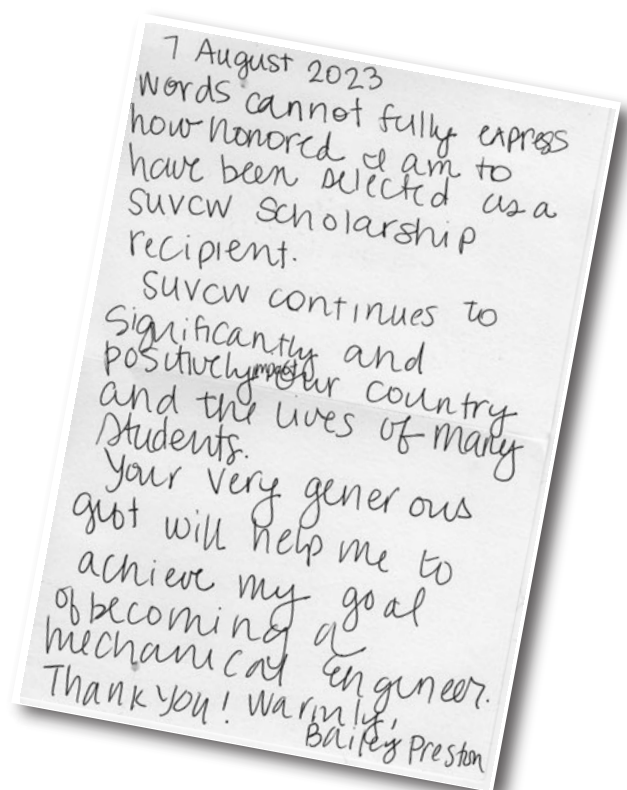 7 August 2023
Words cannot fully express
how honored I am to
have been selected as a
SUVCW Scholarship
recipient.
SUVCW continues to
significantly and
positively impact our country
and the lives of many
students.
Your very generous
gift will help me to
achieve my goal
of becoming a
mechanical engineer.
Thank you! Warmly,
Bailey Preston